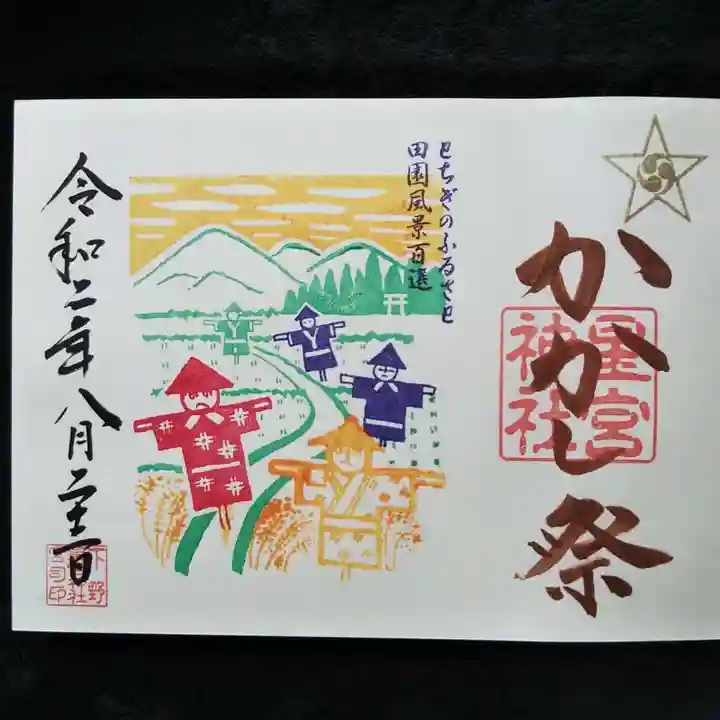 かかし祭
星宮
神社
とちぎのふるさと
田園風景百選
令和二年八月二十二日
下野